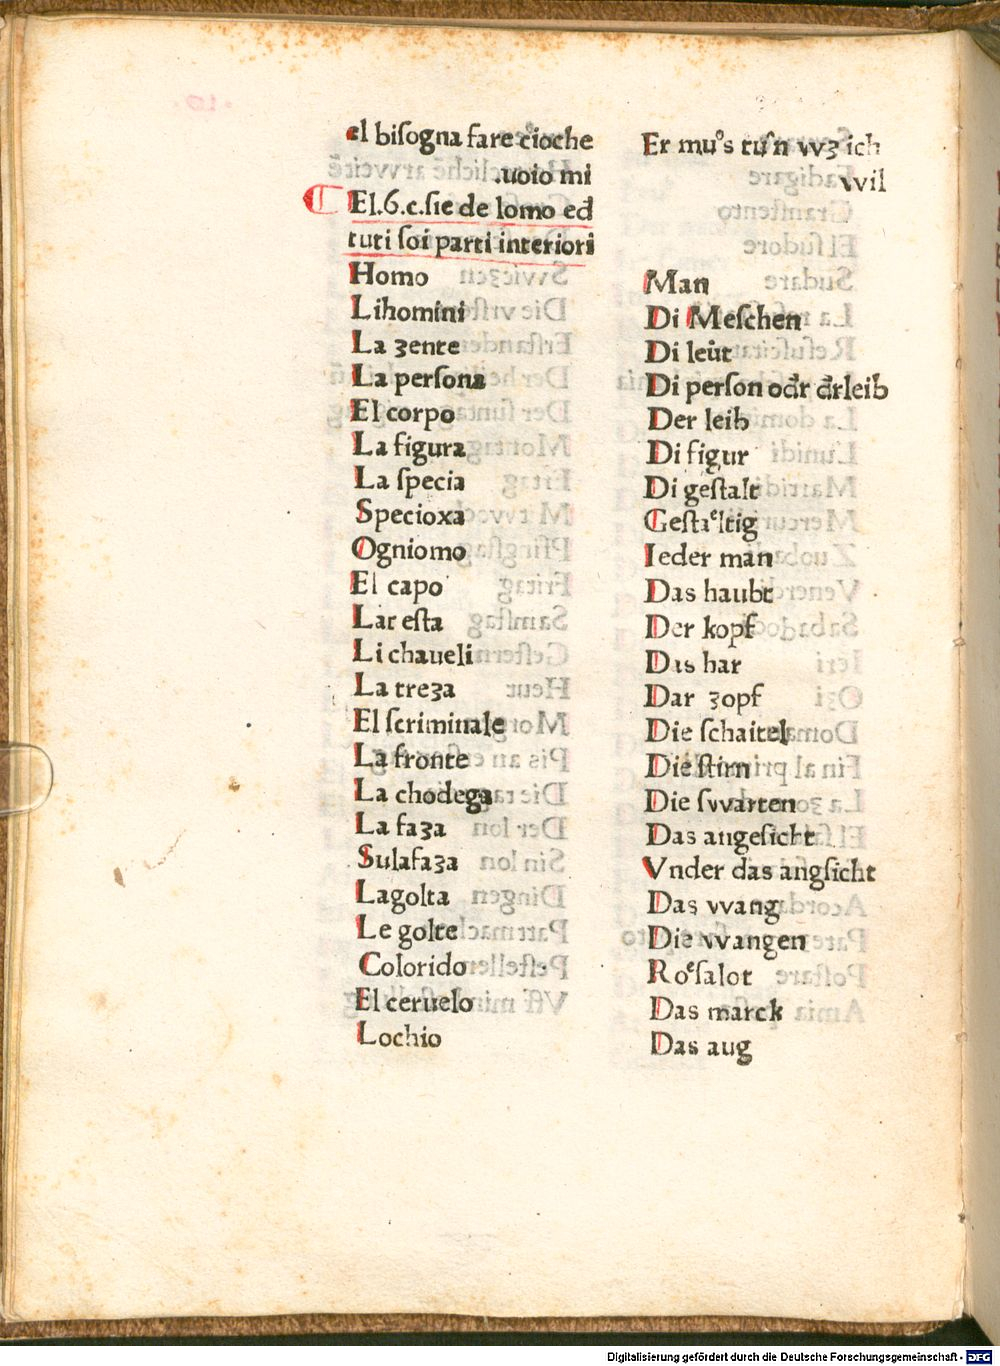 el bisogna fare cioche
.uoio mi
El.6.c.sie de lomo ed
tuti soi parti interiori
Homo
Lihomini
La ʒente
La persona
El corpo
La figura
La specia
Specioxa
Ogniomo
El capo
Lat esta
Li chaueli
La treʒa
El scriminale
La fronte
La chodega
La faʒa
Sulafaʒa
Lagolta
Le golte
Colorido
El ceruelo
Lochio
Er muͦs tuͦn vvʒ ich
vvil
Man
Di Meschen
Di leut
Di person odr drleib
Der leib
Di figur
Di gestalt
Gestaͤltig
Ieder man
Das haubt
Der kopf
Das har
Dar ʒopf
Die schaitel
Die stirn
Die svvarten
Das angesicht
Vnder das angsicht
Das vvang
Die vvangen
Roͤsalot
Das marck
Das aug
Digitalisierung gefördert durch die Deutsche Forschungsgemeinschaft - DFG